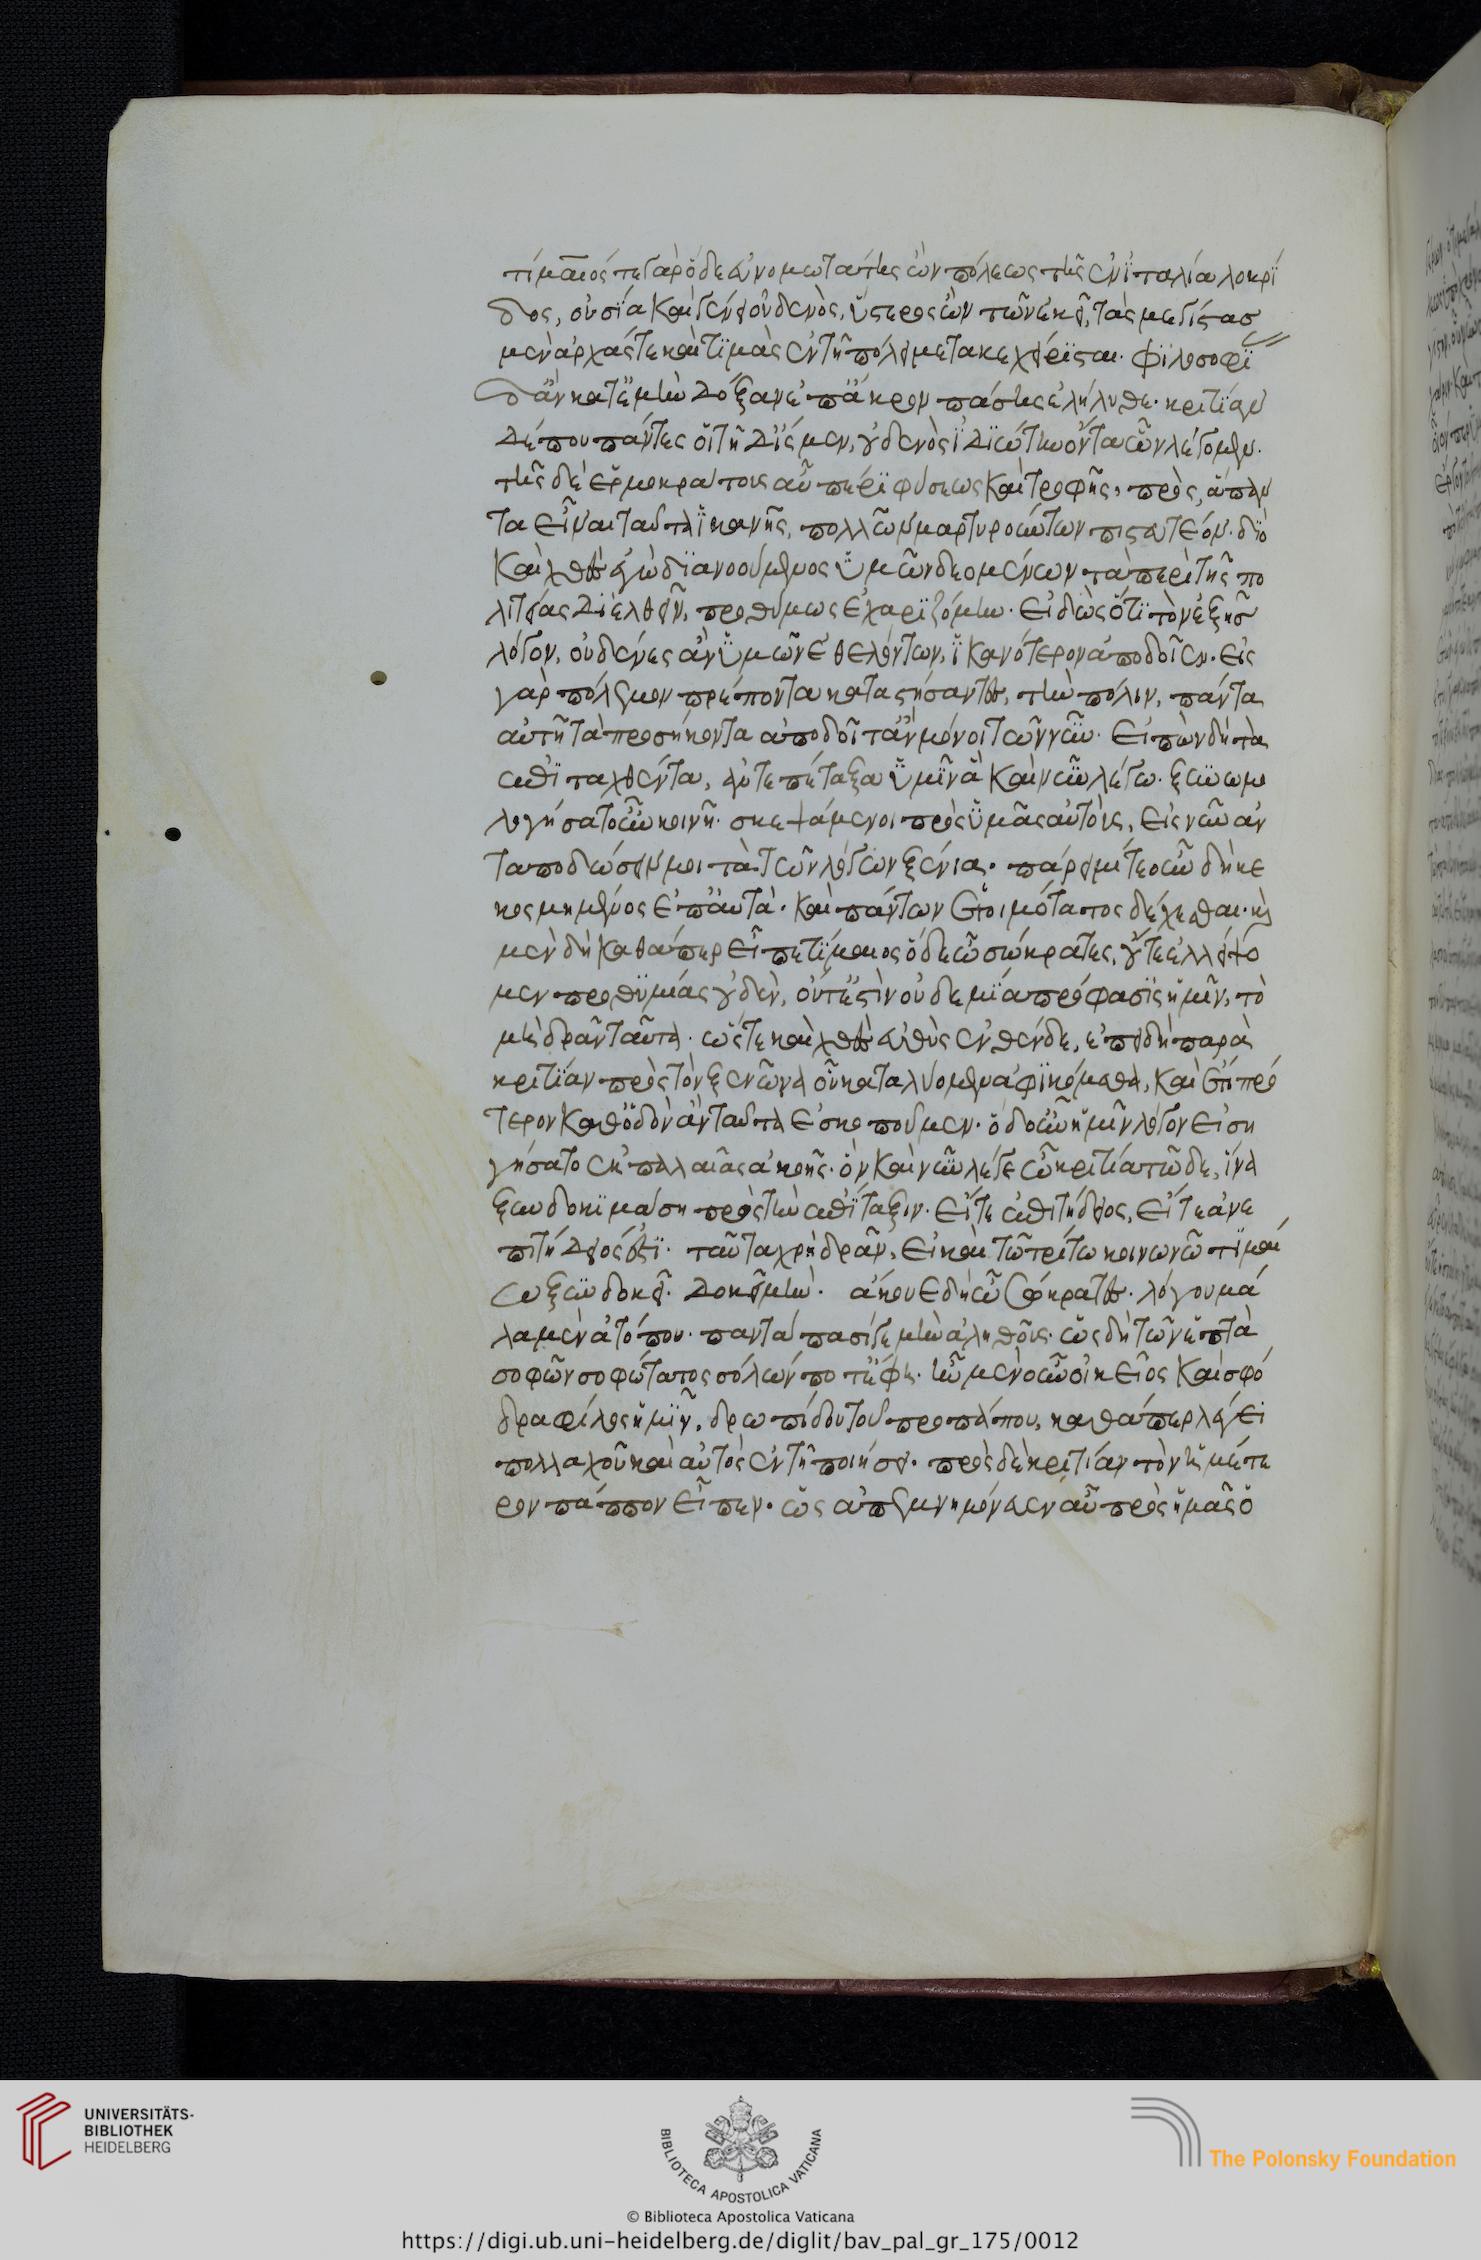 τίμαιός τε γὰρ ὅδε εὐνομωτάτης ὢν πόλεως τῆς ἐν ἰταλία λοκρί
δος, οὐσία καὶ γένει οὐδενὸς, ὕστερος ὢν τῶν ἐκεῖ, τὰς μεγίστας
μὲν ἀρχάς τε καὶ τιμὰς ἐν τῆ πόλει μετακεχείρισται. φιλοσοφί
ας δ' ἂν κατ' ἐμὴν δόξαν ἐπ' ἄκρον πάσης ἐλήλυθε. κριτίαν
δέ που πάντες οἱ τῆδ' ἴσμεν, οὐδενὸς ἰδιώτην ὄντα ὧν λέγομεν.
τῆς δὲ ἑρμοκράτους αὖ περὶ φύσεως καὶ τροφῆς, πρὸς, ἅπαν
τα εἶναι ταῦτα ἱκανῆς, πολλῶν μαρτυρούντων πιστευτέον. διὸ
καὶ χθὲς ἐγὼ διανοούμενος ὑμῶν δεομένων τὰ περὶ τῆς πο
λιτείας διελθεῖν, προθύμως ἐχαριζόμην. εἰδὼς ὅτι τὸν ἑξῆς
λόγον, οὐδένες ἂν ὑμῶν ἐθελόντων, ἱκανότερον ἀποδοῖεν. εἰς
γὰρ πόλεμον πρέποντα καταστήσαντες, τὴν πόλιν, πάντα
αὐτῆ τὰ προσήκοντα ἀποδοῖτ' ἂν μόνοι τῶν νῦν. εἰπὼν δὴ τὰ
ἐπιταχθέντα, ἀντεπέταξα ὑμῖν ἃ καὶ νῦν λέγω. ξυνωμο
λογήσατ' οὖν κοινῆ. σκεψάμενοι πρὸς ὑμᾶς αὐτοὺς, εἰς νῦν ἀν
ταποδώσειν μοι τὰ τῶν λόγων ξένια. πάρειμί τε οὖν δὴ κε
κοσμημένος ἐπ' αὐτὰ. καὶ πάντων ἑτοιμότατος δέχεσθαι. καὶ
μὲν δὴ καθάπερ εἶπε τίμαιος ὅδε ὦ σώκρατες, οὔτε ἐλλείψο
μεν προθυμίας οὐδὲν, οὔτ' ἔστιν οὐδεμία πρόφασις ἡμῖν, τὸ
μὴ δρᾶν ταῦτα. ὥστε καὶ χθὲς εὐθὺς ἐνθένδε, ἐπειδὴ παρὰ
κριτίαν πρὸς τὸν ξενῶνα οὗ καταλύομεν ἀφικόμεθα, καὶ ἔτι πρό
τερον καθ' ὁδὸν ἂν ταῦτα ἐσκοποῦμεν. ὅδ' οὖν ἡμῖν λόγον εἰση
γήσατο ἐκ παλαιᾶς ἀκοῆς. ὃν καὶ νῦν λέγε ὦ κριτία τῶδε, ἵνα
ξυνδοκιμάση πρὸς τὴν ἐπίταξιν. εἴτε ἐπιτήδειος, εἴτε ἀνε
πιτήδειός ἐστι. ταῦτα χρὴ δρᾶν, εἰ καὶ τῶ τρίτω κοινωνῶ τιμαί
ω ξυνδοκεῖ. δοκεῖ μὴν. ἄκουε δὴ ὦ σώκρατες. λόγου μά
λα μὲν ἀτόπου. παντάπασί γε μὴν ἀληθοῦς. ὡς δὴ τῶν ἑπτὰ
σοφῶν σοφώτατος σόλων ποτ' ἔφη. ἦν μὲν οὖν οἰκεῖος καὶ σφό
δρα φίλος ἡμῖν, δρωπίδου τοῦ προπάπου, καθάπερ λέγει
πολλαχοῦ καὶ αὐτὸς ἐν τῆ ποιήσει. πρὸς δὲ κριτίαν τὸν ἡμέτε
ρον πάππον εἶπεν. ὡς ἀπεμνημόνευεν αὖ πρὸς ἡμᾶς ὁ
UNIVERSITÄTS-
BIBLIOTHEK
HEIDELBERG
BIBLIOTECA APOSTOLICA VATICANA
The Polonsky Foundation
© Biblioteca Apostolica Vaticana
https://digi.ub.uni-heidelberg.de/diglit/bav_pal_gr_175/0012